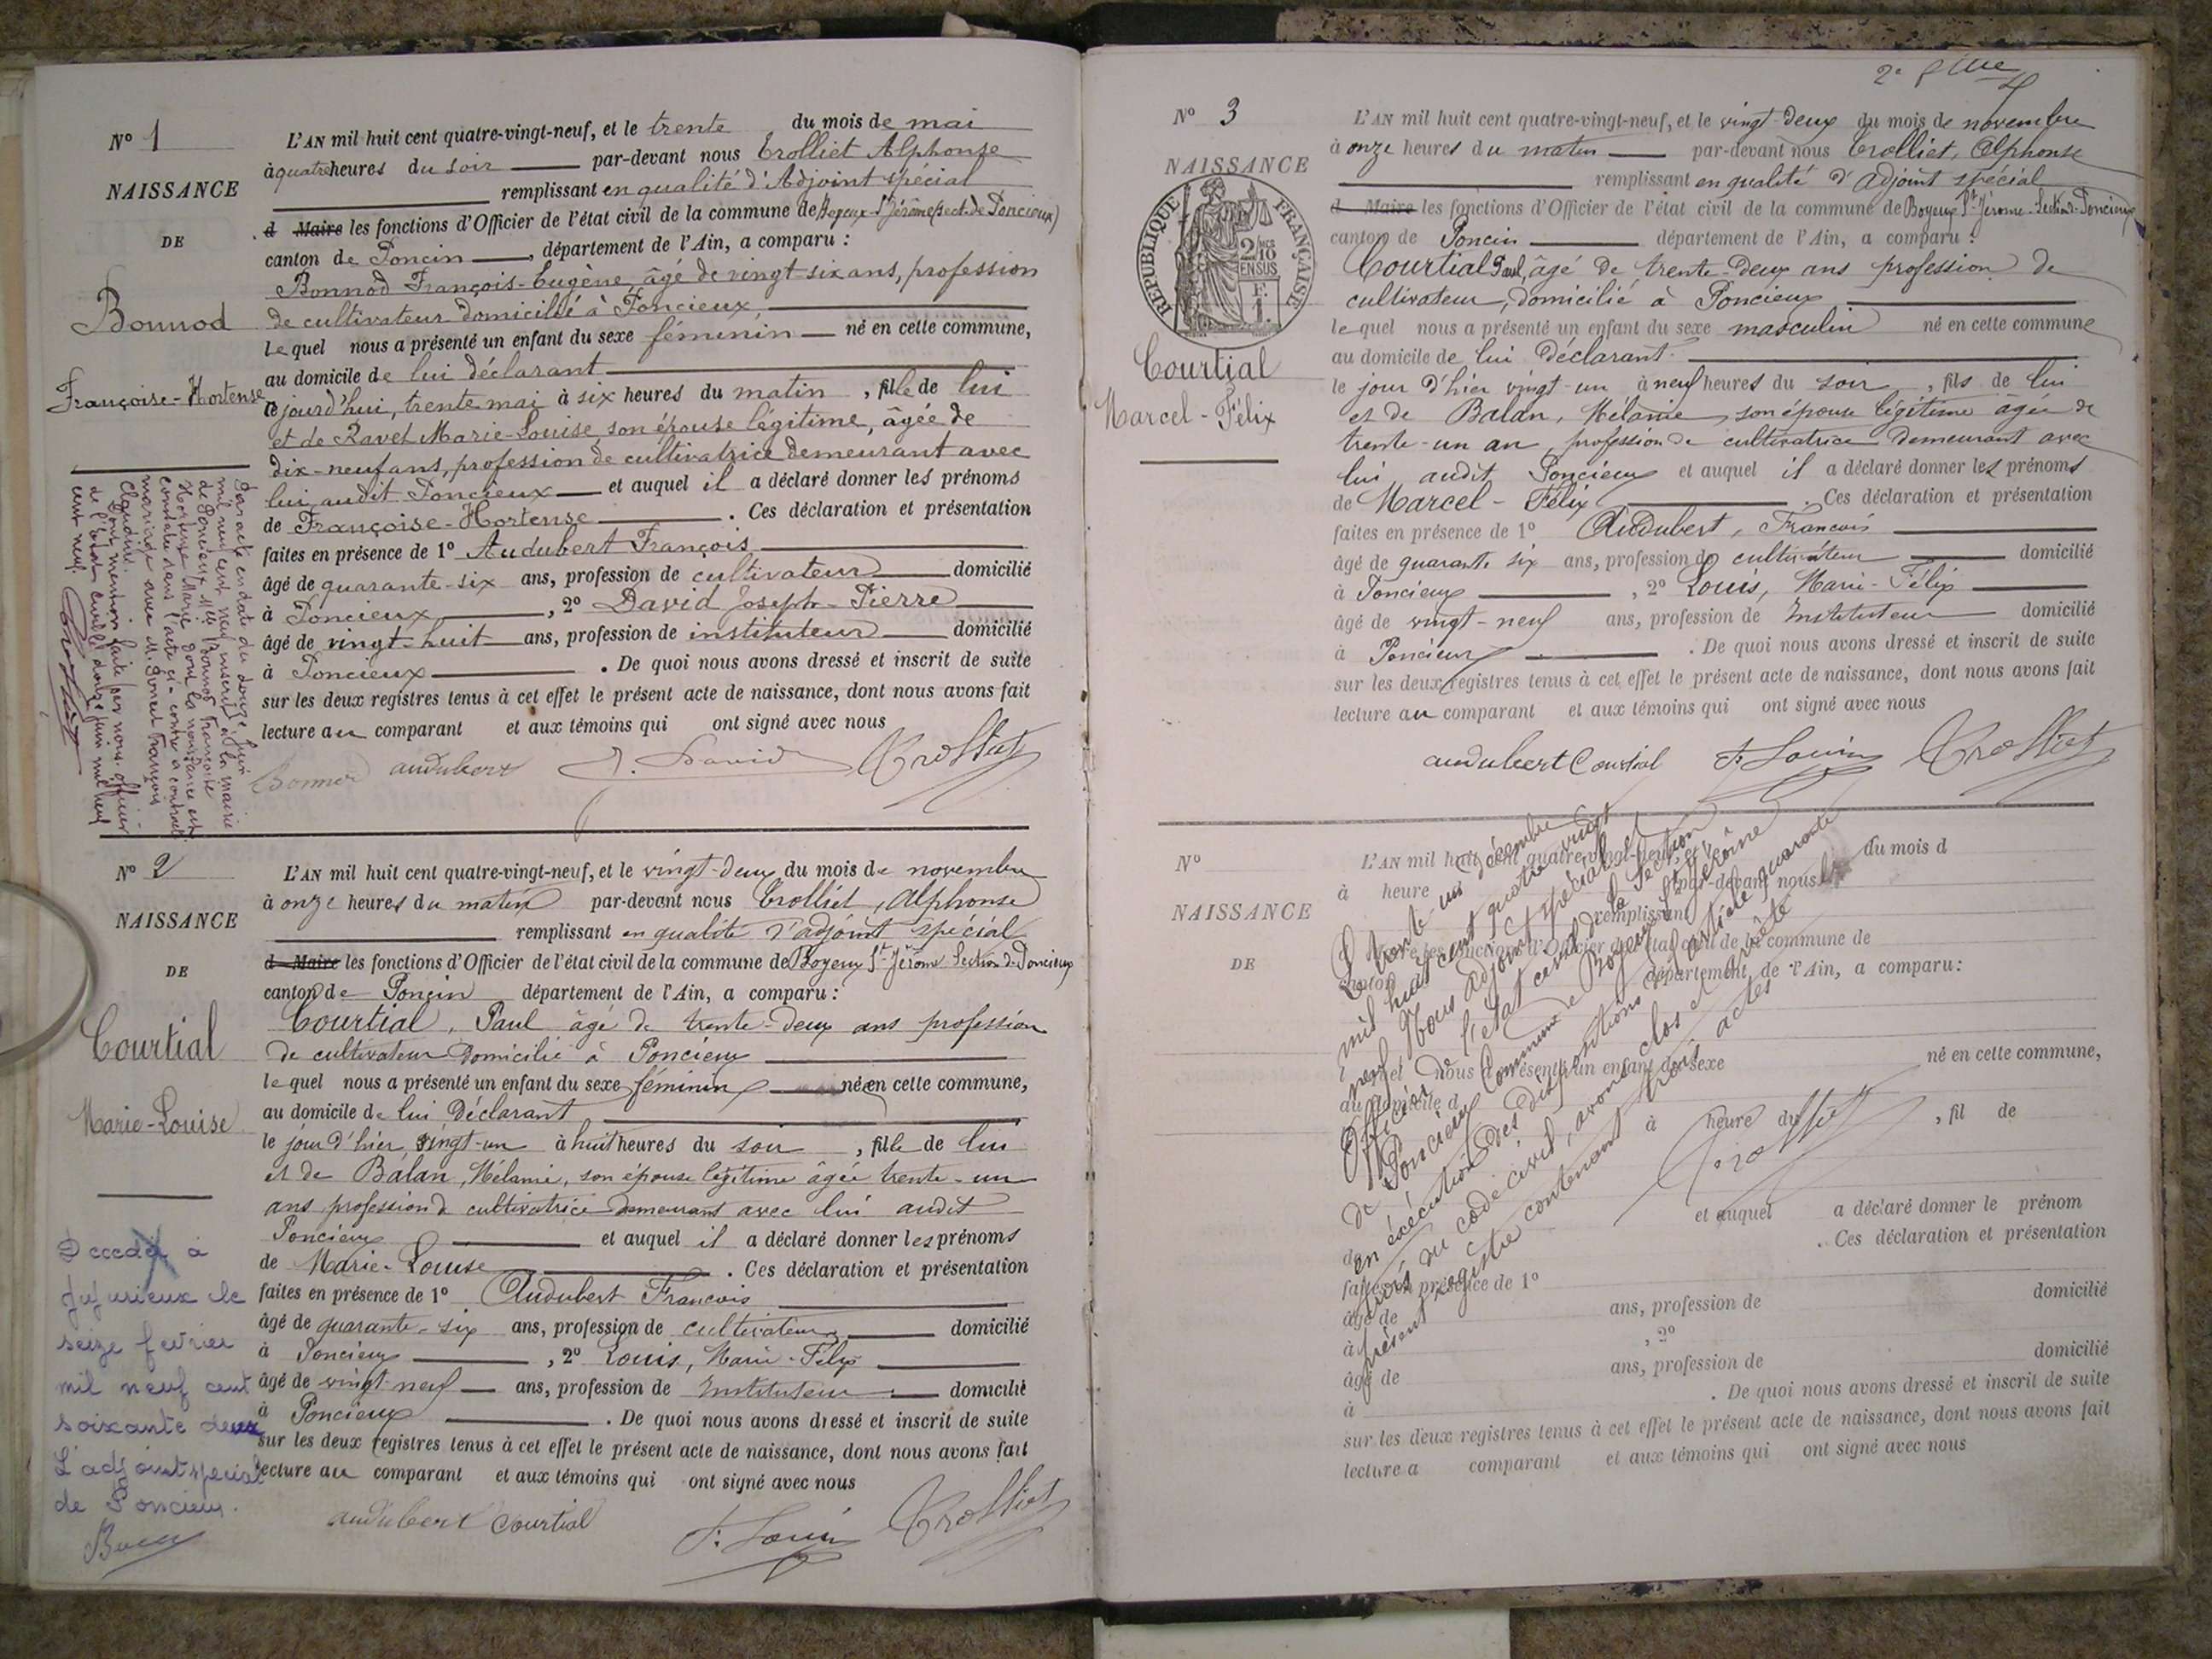 N° 1
NAISSANCE
DE
Bonnod
Françoise-Hortense
L'AN mil huit cent quatre-vingt-neuf, et le trente du mois de mai
à quatre heures du soir par-devant nous Trolliet Alphonse
remplissant en qualité d'Adjoint spécial
d Maire les fonctions d'Officier de l'état civil de la commune de Boyeux-St Jérôme (sect. de Poncieux)
canton de Poncin, département de l'Ain, a comparu :
Bonnod François-Eugène, âgé de vingt-six ans, profession
de cultivateur domicilié à Poncieux
lequel nous a présenté un enfant du sexe féminin né en cette commune,
au domicile de lui déclarant
le jourd'hui, trente mai à six heures du matin, fille de lui
et de Ravet Marie-Louise, son épouse légitime, âgée de
dix-neuf ans, profession de cultivatrice demeurant avec
lui audit Poncieux et auquel il a déclaré donner les prénoms
de Françoise-Hortense. Ces déclaration et présentation
faites en présence de 1° Audubert François
âgé de quarante-six ans, profession de cultivateur domicilié
à Poncieux, 2° David Joseph-Pierre
âgé de vingt-huit ans, profession de instituteur domicilié
à Poncieux. De quoi nous avons dressé et inscrit de suite
sur les deux registres tenus à cet effet le présent acte de naissance, dont nous avons fait
lecture au comparant et aux témoins qui ont signé avec nous
Bonnod audubert J. David Trolliet
Par acte en date du douze juin
mil neuf cent neuf inscrit à la mairie
de Poncieux Mlle Bonnod Françoise
Hortense Marie dont la naissance est
constatée dans l'acte ci-contre a contracté
mariage avec M. François
Claudius.
Dont mention faite par nous officier
de l'Etat civil le douze juin mil neuf
cent neuf.
Trolliet
N° 2
NAISSANCE
DE
Courtial
Marie-Louise
L'AN mil huit cent quatre-vingt-neuf, et le vingt-deux du mois de novembre
à onze heures du matin par-devant nous Trolliet, Alphonse
remplissant en qualité d'adjoint spécial
d Maire les fonctions d'Officier de l'état civil de la commune de Boyeux St-Jérôme Section de Poncieux
canton de Poncin département de l'Ain, a comparu :
Courtial, Paul âgé de trente-deux ans profession
de cultivateur domicilié à Poncieux
lequel nous a présenté un enfant du sexe féminin né en cette commune,
au domicile de lui déclarant
le jour d'hier, vingt-un à huit heures du soir, fille de lui
et de Balan, Mélanie, son épouse légitime âgée trente-un
ans profession de cultivatrice demeurant avec lui audit
Poncieux et auquel il a déclaré donner les prénoms
de Marie-Louise. Ces déclaration et présentation
faites en présence de 1° Audubert François
âgé de quarante-six ans, profession de cultivateur domicilié
à Poncieux, 2° Louis, Marie-Félix
âgé de vingt-neuf ans, profession de Instituteur domicilié
à Poncieux. De quoi nous avons dressé et inscrit de suite
sur les deux registres tenus à cet effet le présent acte de naissance, dont nous avons fait
lecture au comparant et aux témoins qui ont signé avec nous
audubert Courtial F. Louis Trolliet
Decedée à
Jujurieux le
seize fevrier
mil neuf cent
soixante deux
L'adjoint special
de Poncieux.
2e
N° 3
NAISSANCE
RÉPUBLIQUE FRANÇAISE
2/10 EN SUS
F. 1.
Courtial
Marcel-Félix
L'AN mil huit cent quatre-vingt-neuf, et le vingt-deux du mois de novembre
à onze heures du matin par-devant nous Trolliet, Alphonse
remplissant en qualité d'adjoint spécial
d Maire les fonctions d'Officier de l'état civil de la commune de Boyeux St-Jérome-Section de Poncieux
canton de Poncin département de l'Ain, a comparu :
Courtial Paul, âgé de trente-deux ans profession de
cultivateur, domicilié à Poncieux
lequel nous a présenté un enfant du sexe masculin né en cette commune
au domicile de lui déclarant
le jour d'hier vingt-un à neuf heures du soir, fils de lui
et de Balan, Mélanie, son épouse légitime âgée de
trente-un an, profession de cultivatrice demeurant avec
lui audit Poncieux et auquel il a déclaré donner les prénoms
de Marcel-Félix. Ces déclaration et présentation
faites en présence de 1° Audubert, François
âgé de quarante six ans, profession de cultivateur domicilié
à Poncieux, 2° Louis, Marie-Félix
âgé de vingt-neuf ans, profession de Instituteur domicilié
à Poncieux. De quoi nous avons dressé et inscrit de suite
sur les deux registres tenus à cet effet le présent acte de naissance, dont nous avons fait
lecture au comparant et aux témoins qui ont signé avec nous
audubert Courtial F. Louis Trolliet
N°
NAISSANCE
DE
L'AN mil huit cent quatre-vingt-neuf, et le du mois d
à heure par-devant nous
remplissant
d Maire les fonctions d'Officier de l'état civil de la commune de
canton département de l'Ain, a comparu :
l quel nous a présenté un enfant du sexe né en cette commune,
au domicile d
à heure du, fil de
et auquel a déclaré donner le prénom
de. Ces déclaration et présentation
faites en présence de 1°
âgé de ans, profession de domicilié
à, 2°
âgé de ans, profession de domicilié
à. De quoi nous avons dressé et inscrit de suite
sur les deux registres tenus à cet effet le présent acte de naissance, dont nous avons fait
lecture a comparant et aux témoins qui ont signé avec nous
Le trente un décembre
mil huit cent quatre vingt
neuf, Nous adjoint spécial et
Officier de l'état civil de la Section
de Poncieux Commune de Boyeux St Jérôme
en exécution des dispositions de l'article quarante
trois du code civil, avons clos et arrêté le
présent registre contenant trois actes
Trolliet